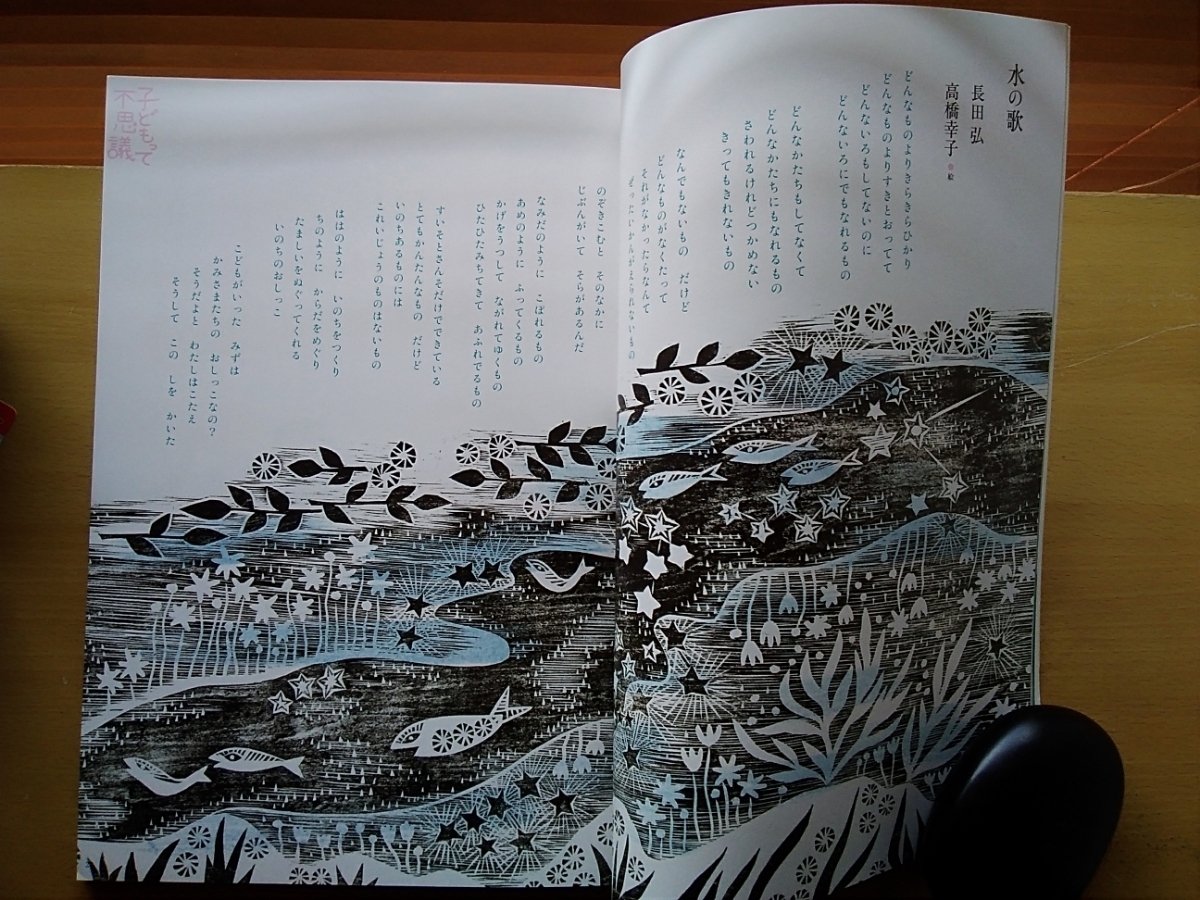 水の歌
長田 弘
高橋幸子 絵
どんなものよりきらきらひかり
どんなものよりすきとおってて
どんないろもしてないのに
どんないろにでもなれるもの
どんなかたちもしてなくて
どんなかたちにもなれるもの
さわれるけれどつかめない
きってもきれないもの
なんでもないもの だけど
どんなものがなくだって
それがなかったらなんて
ぜったいかんがえられないもの
のぞきこむと そのなかに
じぶんがいて そらがあるんだ
なみだのように こぼれるもの
あめのように ふってくるもの
かげをうつして ながれてゆくもの
ひたひたみちてきて あふれでるもの
すいそとさんそだけでできている
とてもかんたんなもの だけど
いのちあるものには
これいじょうのものはないもの
ははのように いのちをつくり
ちのように からだをめぐり
たましいをぬぐってくれる
いのちのおしっこ
こどもがいった みずは
かみさまたちの おしっこなの?
そうだよと わたしはこたえ
そうして この しを かいた
子どもって
不思議